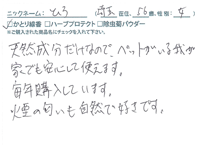 ニックネーム: ひろ (埼玉 在住, 56歳, 性別: 女)
☑かとり線香 □ハーブプロテクト □除虫菊パウダー
※ご購入された商品名にチェックを入れて下さい。
天然成分だけなので、ペットがいる我が
家でも安心して使えます。
毎年購入しています。
煙の匂いも自然で好きです。